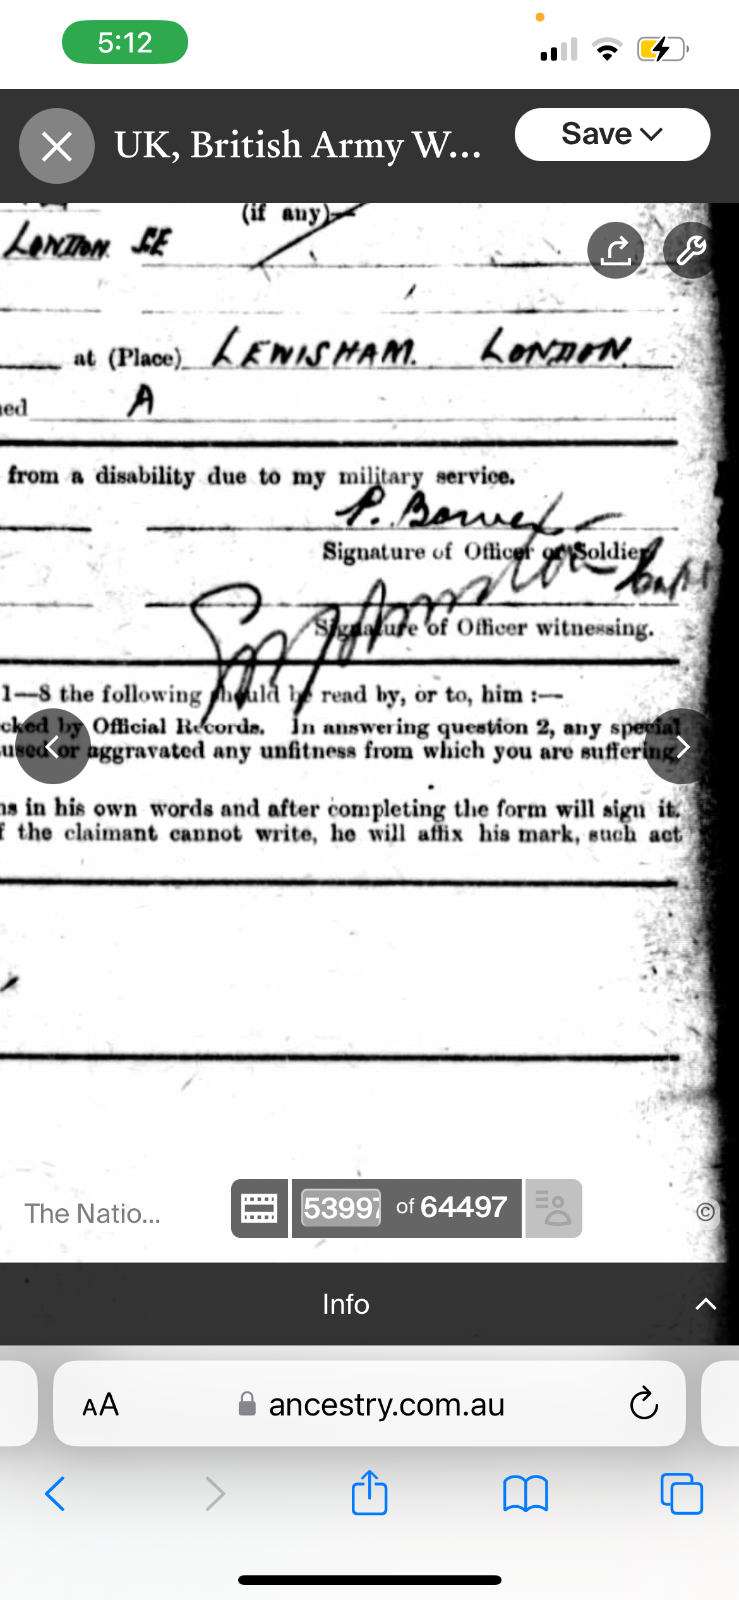 5:12
UK, British Army W...
Save
(if any)
LONDON. SE
at (Place) LEWISHAM. LONDON.
ned A
from a disability due to my military service.
P.
Signature of Officer or Soldier
Capt
Signature of Officer witnessing.
1—8 the following should be read by, or to, him :—
cked by Official Records. In answering question 2, any special
used or aggravated any unfitness from which you are suffering
ns in his own words and after completing the form will sign it.
f the claimant cannot write, he will affix his mark, such act
The Natio...
53997 of 64497
©
Info
AA
ancestry.com.au